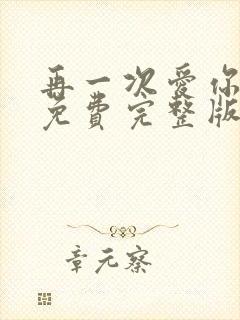 再一次爱你
免费完整版
章元察